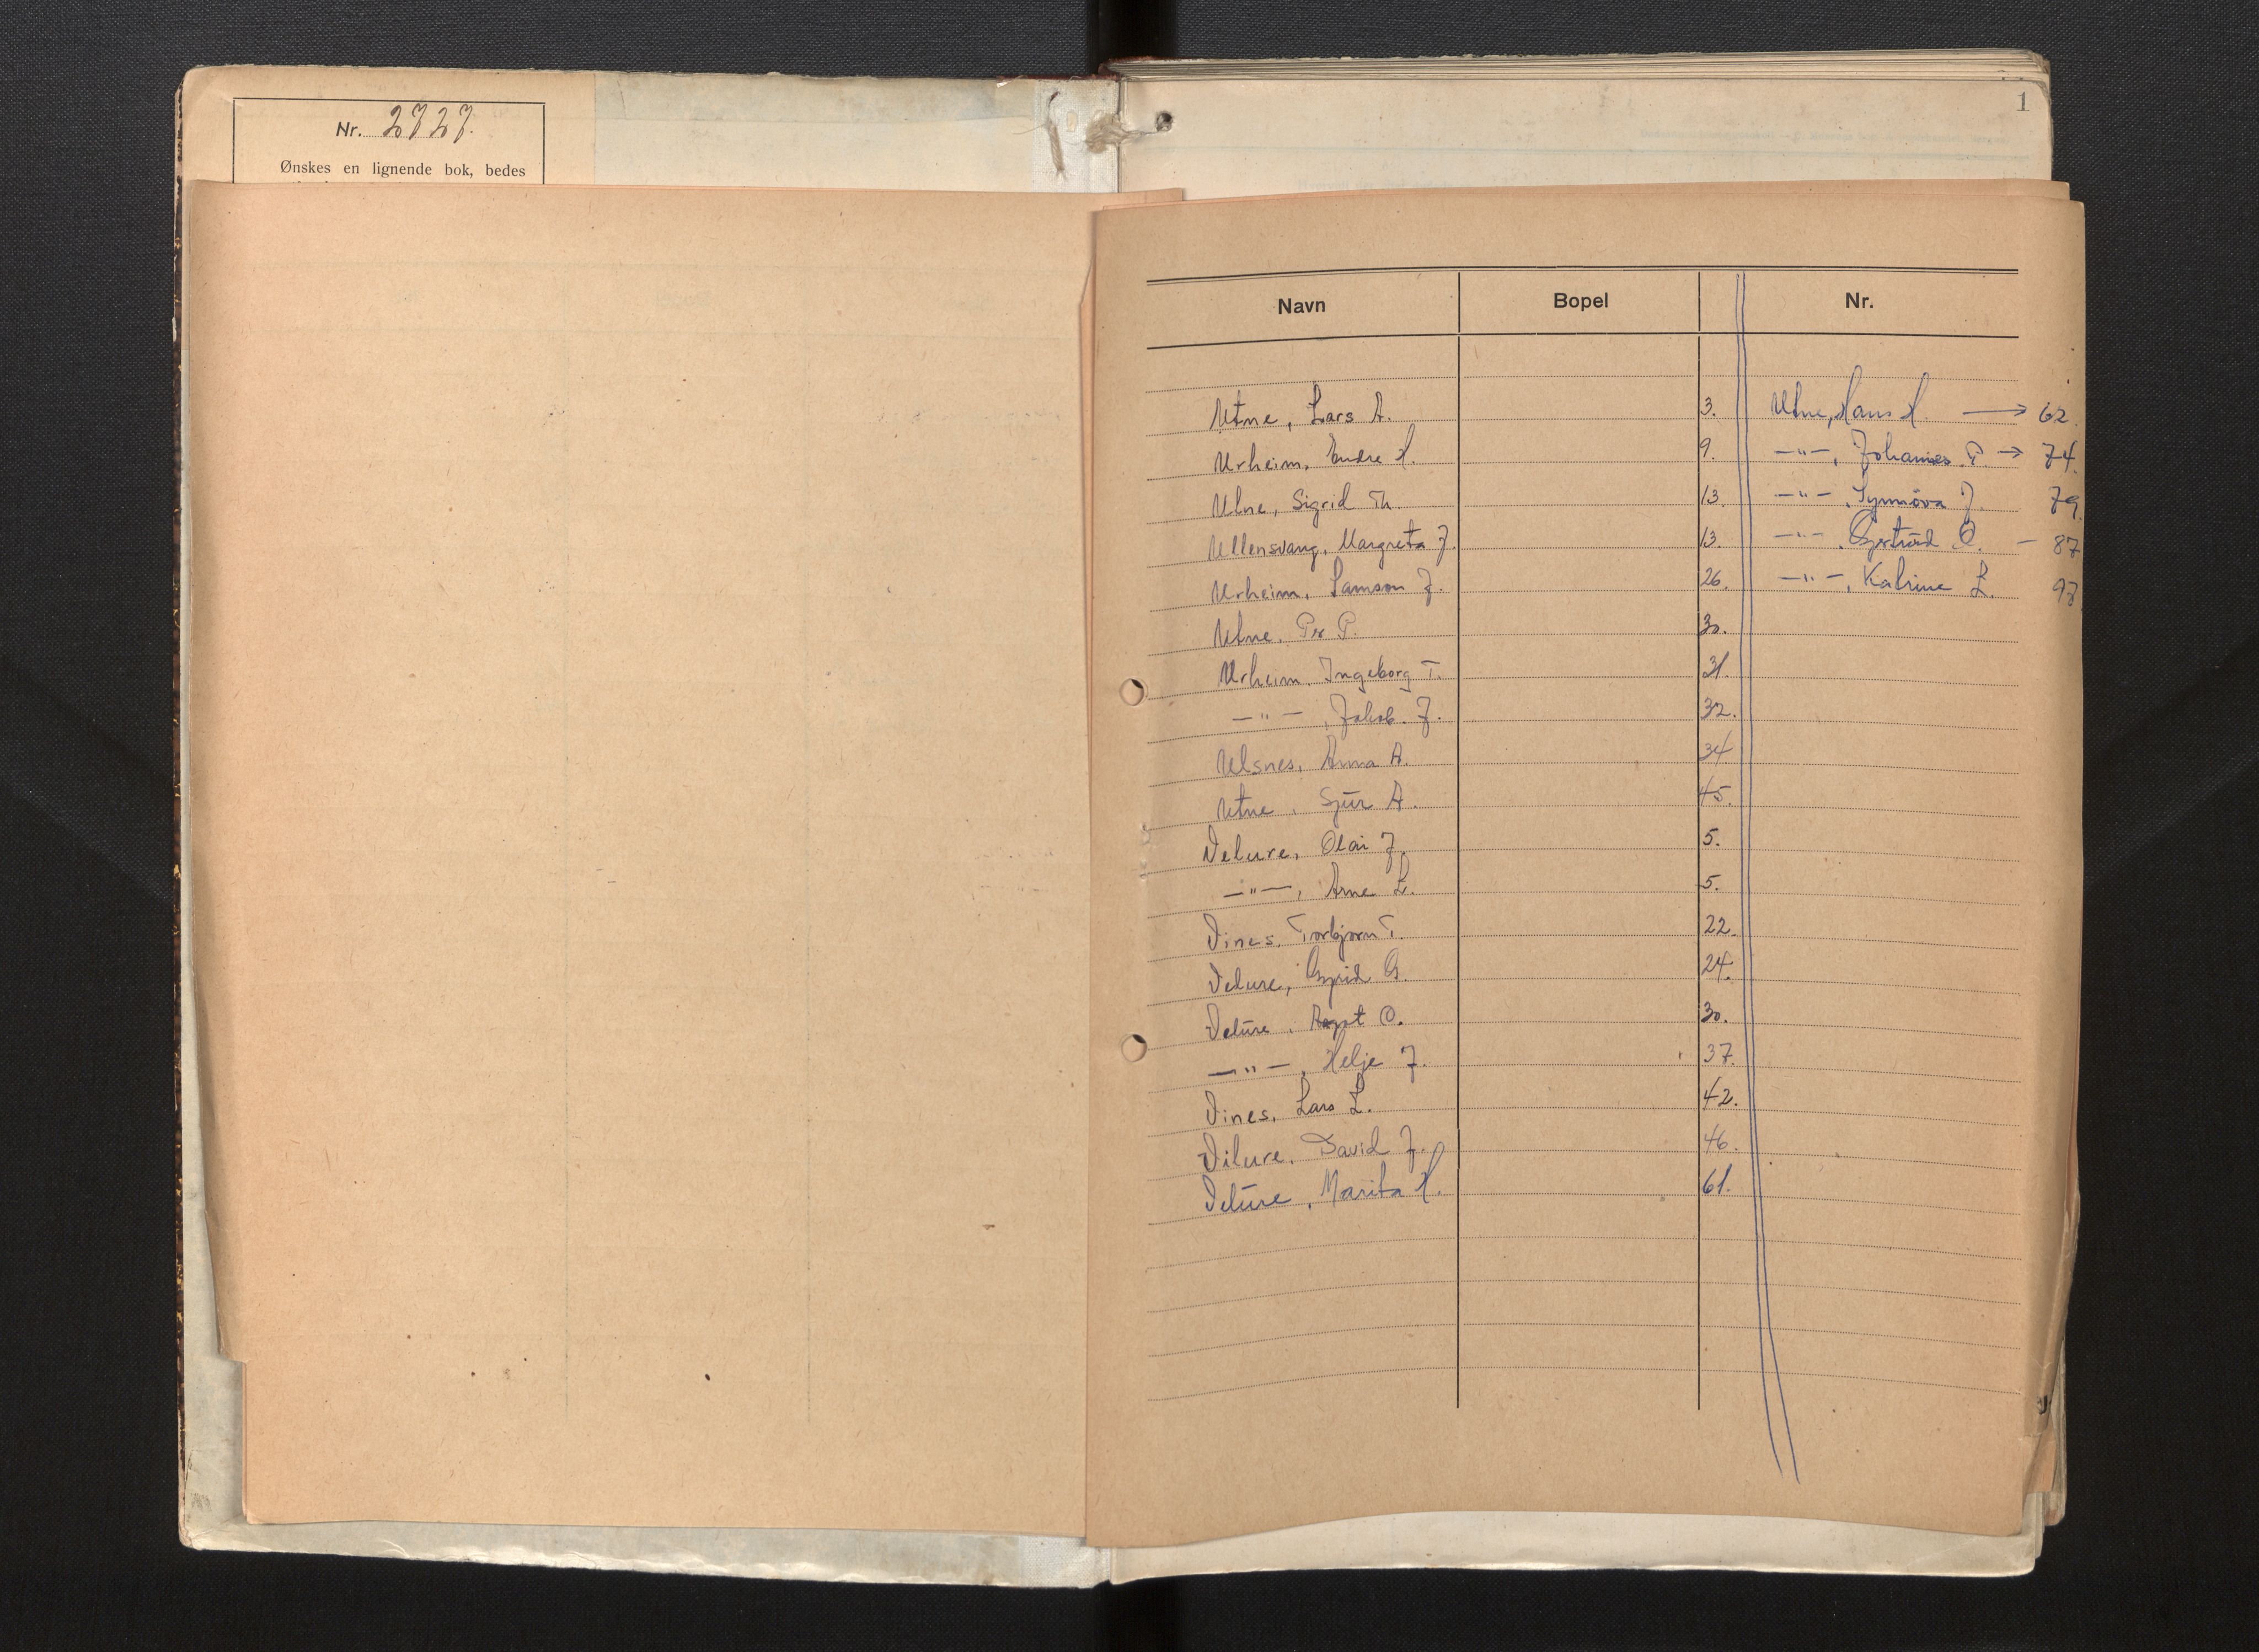 Nr. 2727.
Ønskes en lignende bok, bedes
1
Navn Bopel Nr.
Utne, Lars A. 3. Utne, Hans H. → 62.
Urheim, Endre H. 9. —"—, Johannes P. → 74.
Utne, Sigrid Th. 13. —"—, Synnöva J. 79.
Ullensvang, Margreta J. 13. —"—, Gjertrud O. — 87
Urheim, Samson J. 26. —"—, Katrine L. 97
Utne, Per P. 30.
Urheim, Ingeborg T. 31.
—"—, Jakob J. 32.
Ulsnes, Anna A. 34
Utne, Sjur A. 45.
Velure, Olai J. 5.
—"—, Arne L. 5.
Vines, Torbjørn T. 22.
Velure, G. 24.
Velure, O. 30.
—"—, Helje J. 37.
Vines, Lars L. 42.
Vilure, David J. 46.
Velure, Marita H. 61.